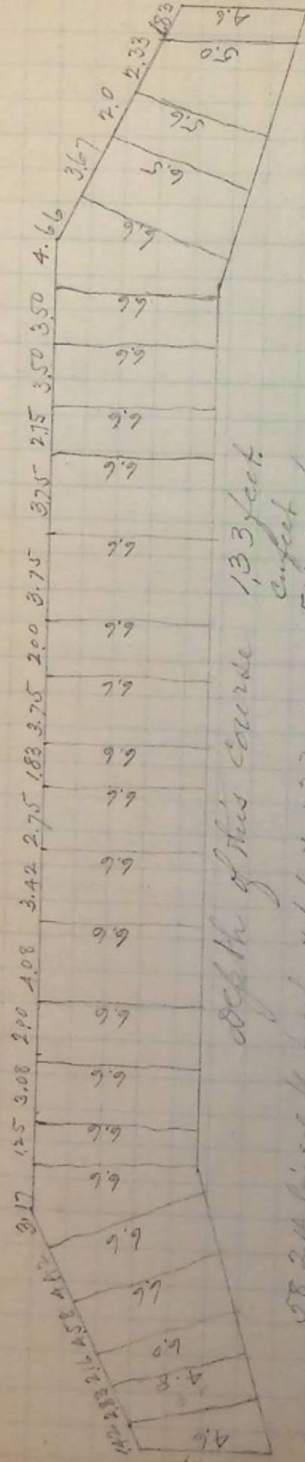 1.42 2.83 2.16 4.58 3.17 1.25 3.08 2.90 4.08 3.42 2.75 1.83 3.75 2.00 3.75 3.75 2.75 3.50 3.50 4.66 3.67 2.0 2.33 .83
4.6 5.0 6.6 6.6 6.6 6.6 6.6 6.6 6.6 6.6 6.6 6.6 6.6 6.6 6.6 6.6 6.6 6.6 6.6 6.6 6.5 5.6 5.0 4.6
depth of this course 1,33 feet.
cufeet